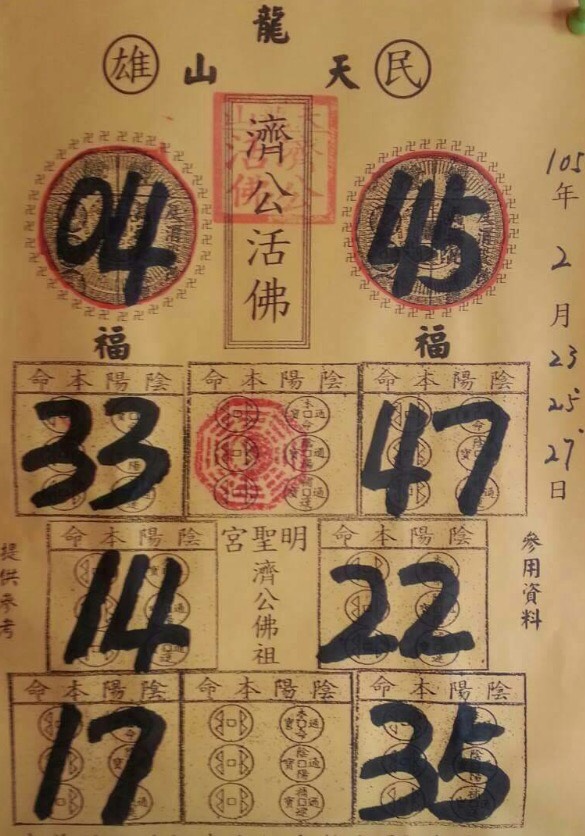 龍
雄 山 天 民
濟公活佛
04 45
福 福
105年2月23 25 27日
命本陽陰 命本陽陰 命本陽陰
33 47
命本陽陰 宮聖明 命本陽陰
14 濟公佛祖 22
提供參考
參用資料
命本陽陰 命本陽陰 命本陽陰
17 35